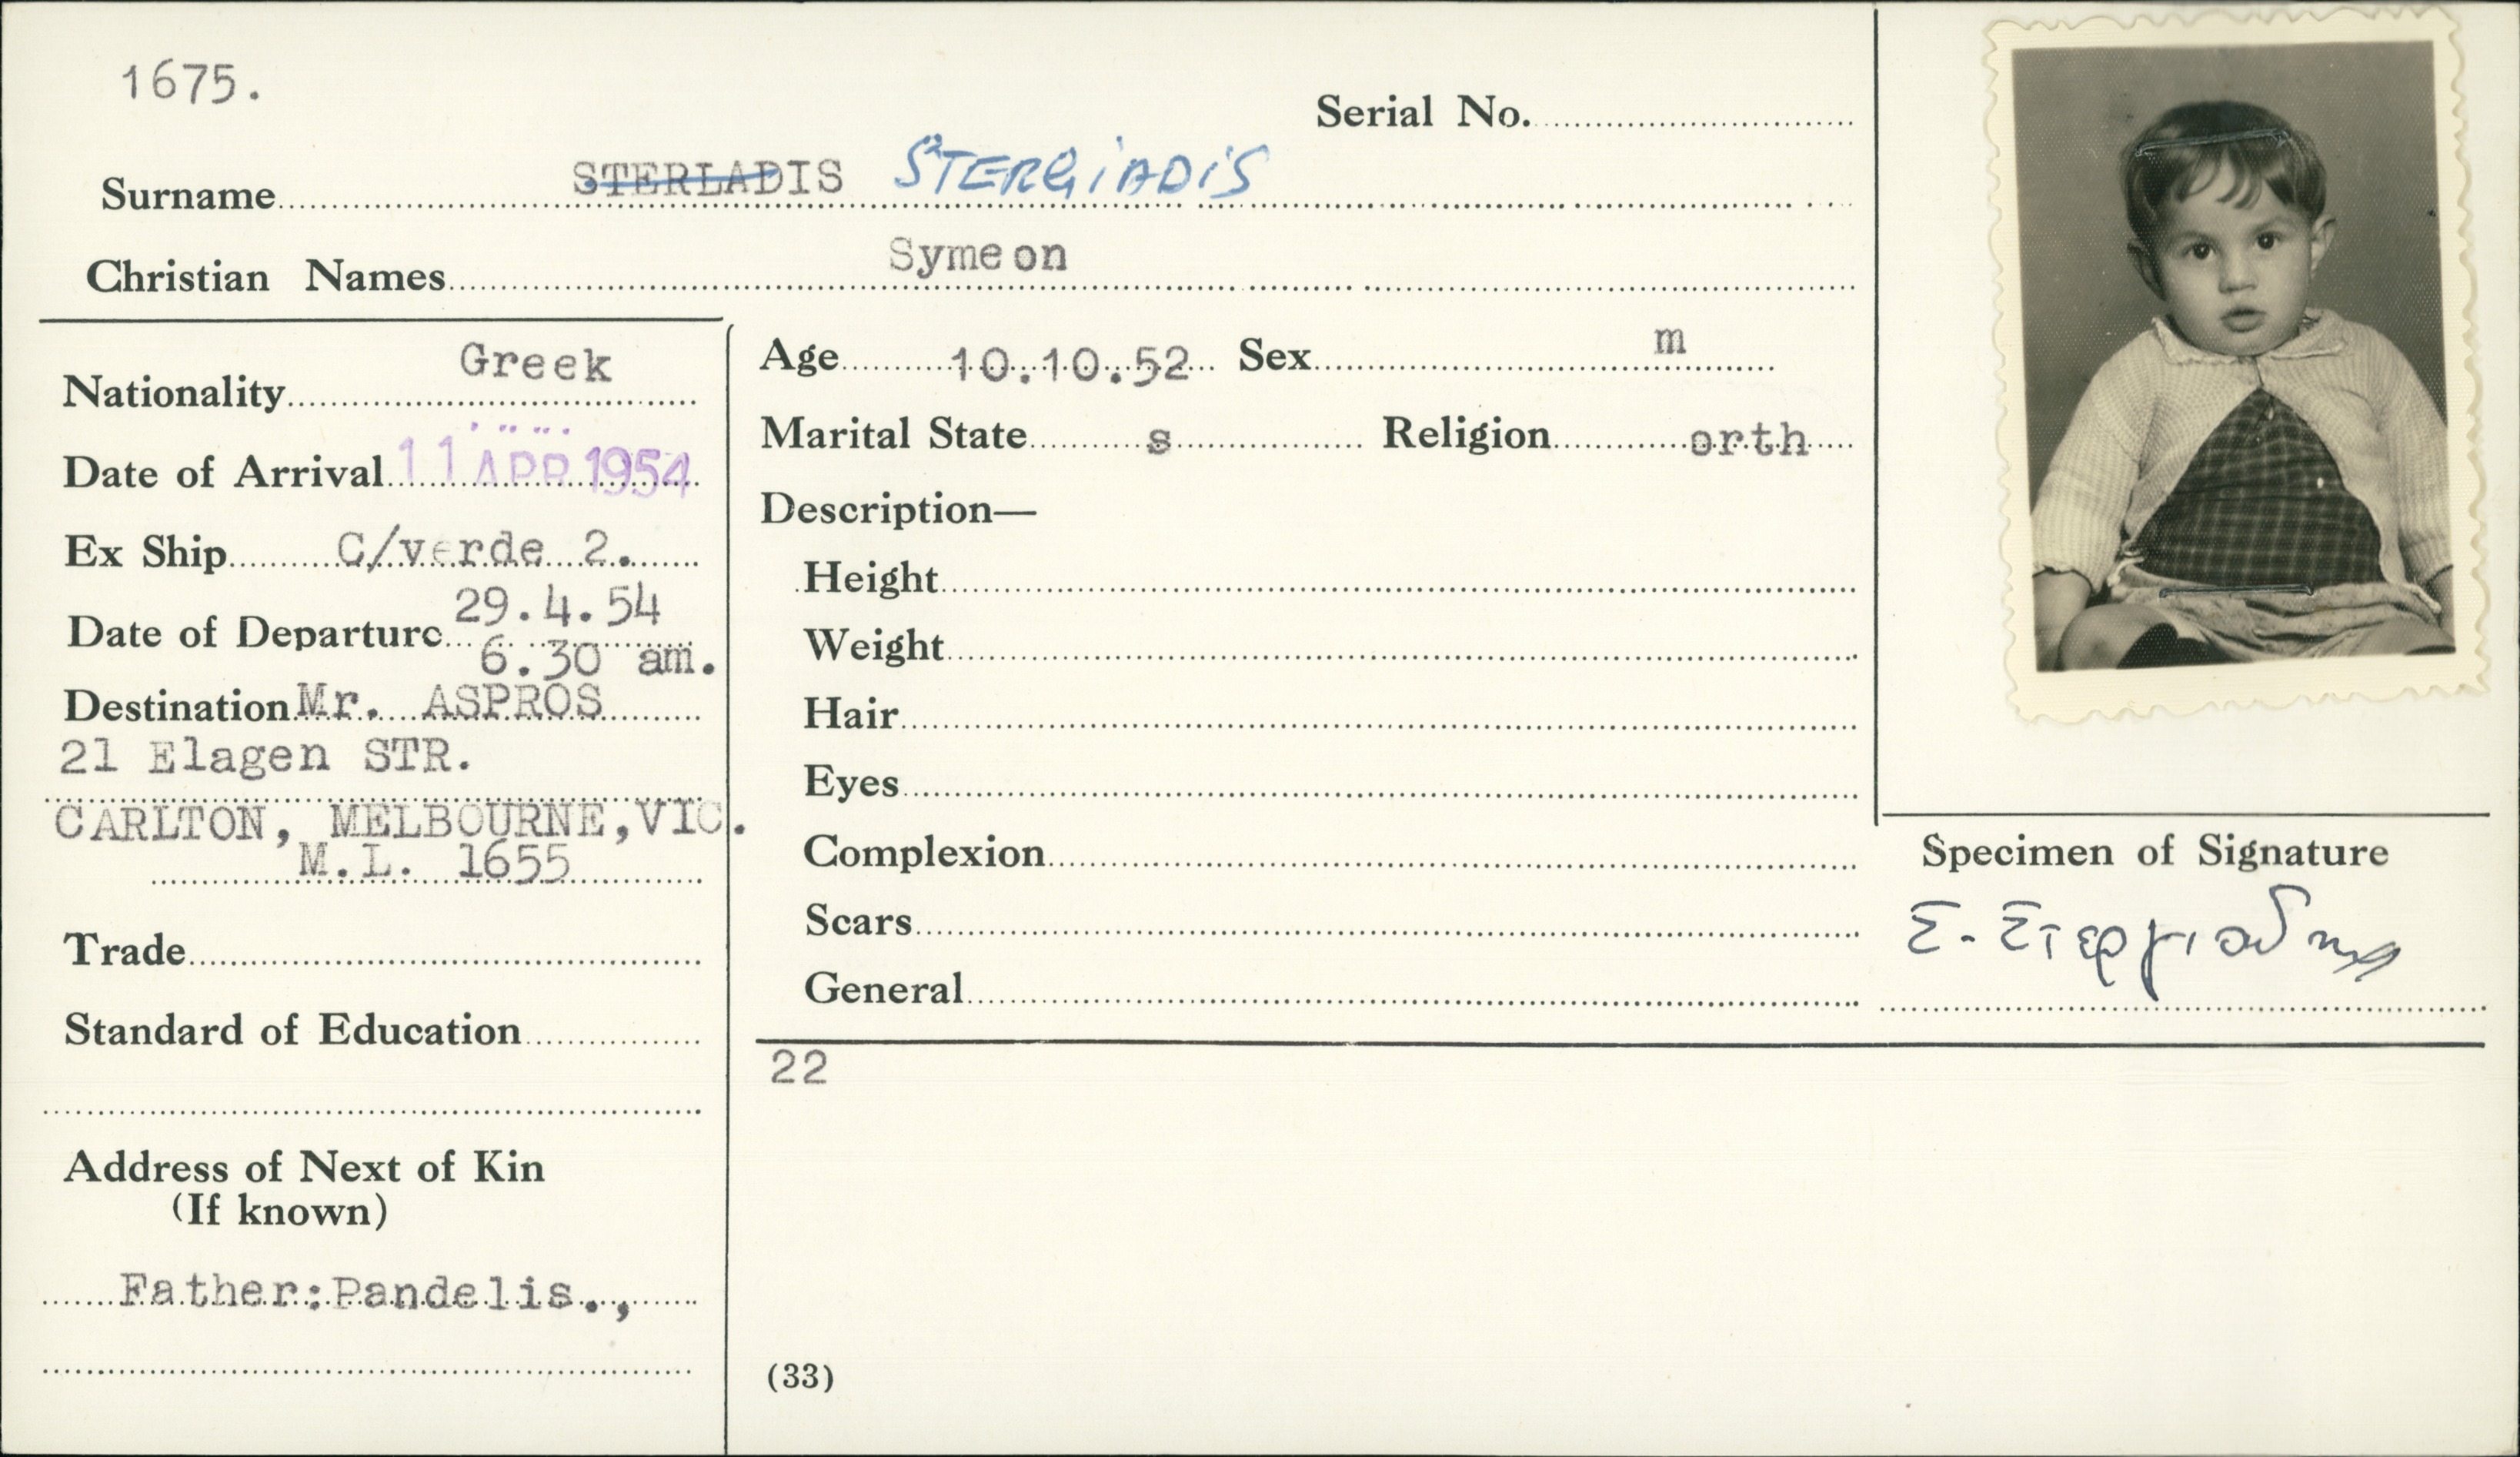 1675.
Serial No.
Surname STERLADIS STERGIADIS
Christian Names Symeon
Nationality Greek
Date of Arrival 11 APR 1954
Ex Ship C/verde 2.
Date of Departure 29.4.54
6.30 am.
Destination Mr. ASPROS
21 Elagen STR.
CARLTON, MELBOURNE, VIC.
M.L. 1655
Trade
Standard of Education
Address of Next of Kin
(If known)
Father:Pandelis.,
Age 10.10.52 Sex m
Marital State s Religion orth
Description—
Height
Weight
Hair
Eyes
Complexion
Scars
General
22
(33)
Specimen of Signature
Σ. Στεργιαδης